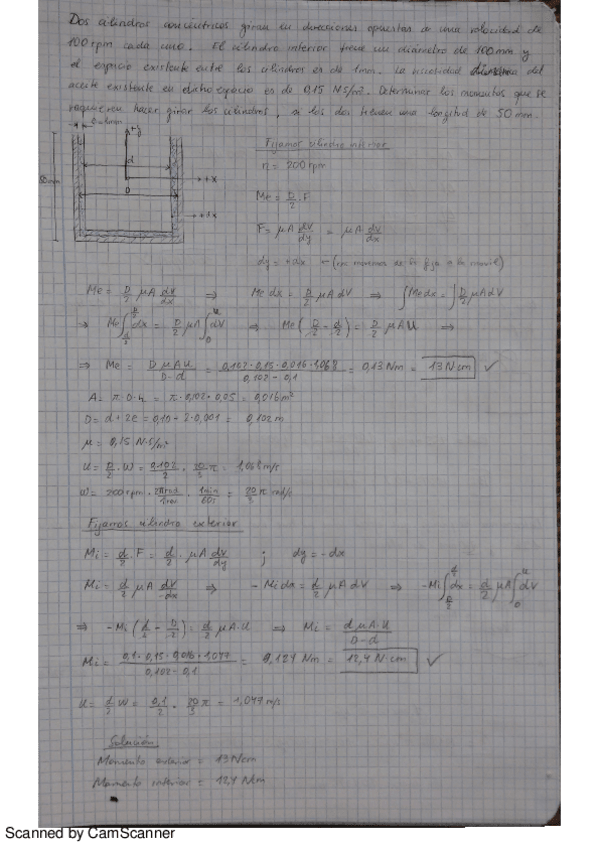 Dos cilindros concéntricos giran en direcciones opuestas a una velocidad de
100 rpm cada uno. El cilindro interior tiene un diámetro de 100 mm y
el espacio existente entre los cilindros es de 1mm. La viscosidad del
aceite existente en dicho espacio es de 0,15 N·S/m². Determinar los momentos que se
requieren hacer girar los cilindros, si los dos tienen una longitud de 50 mm.
Fijamos cilindro interior
n = 200 rpm
Me = D/2 · F
F = μA dV/dy = μA dV/dx
dy = +dx
+y
d
D
+x
+dx
50mm
Me = D/2 μA dV/dx ⇒ Me dx = D/2 μA dV ⇒ ∫Me dx = ∫D/2 μA dV
⇒ Me ∫dx = D/2 μA ∫dV ⇒ Me (D/2 - d/2) = D/2 μAU ⇒
⇒ Me = DμAU/D-d = 0,102·0,15·0,016·1,068/0,102-0,1 = 0,13 Nm = 13 Ncm ✓
A = π·D·h = π·0,102·0,05 = 0,016m²
D = d + 2e = 0,10 + 2·0,001 = 0,102 m
μ = 0,15 N·S/m²
U = D/2 · W = 0,102/2 · 20/3 · π = 1,068 m/s
W = 200 rpm · 2π rad/1rev · 1min/60s = 20/3 π rad/s
Fijamos cilindro exterior
Mi = d/2 · F = d/2 · μA dV/dy ; dy = -dx
Mi = d/2 μA dV/-dx ⇒ - Mi dx = d/2 μA dV ⇒ -Mi ∫dx = d/2 μA ∫dV
⇒ -Mi (d/2 - D/2) = d/2 μA·U ⇒ Mi = dμA·U/D-d
Mi = 0,1·0,15·0,016·1,047/0,102-0,1 = 0,124 Nm = 12,4 N·cm ✓
U = d/2 W = 0,1/2 · 20/3 π = 1,047 m/s
Solución
Momento exterior = 13 Ncm
Momento interior = 12,4 Ncm
Scanned by CamScanner